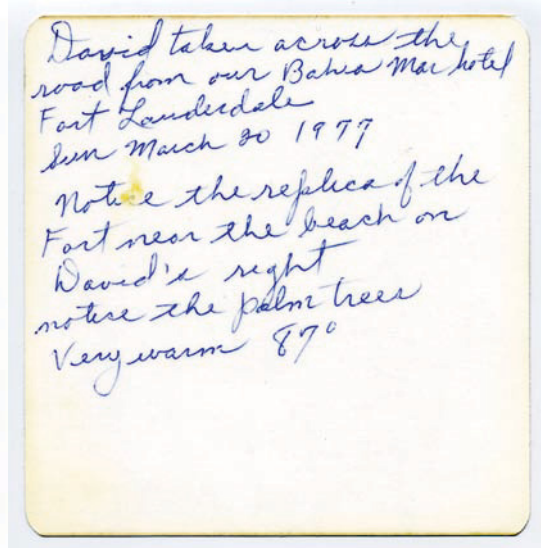 David taken across the
road from our Bahia Mar hotel
Fort Lauderdale
Sun March 20 1977
Notice the replica of the
Fort near the beach on
David's right
notice the palm trees
Very warm 87°